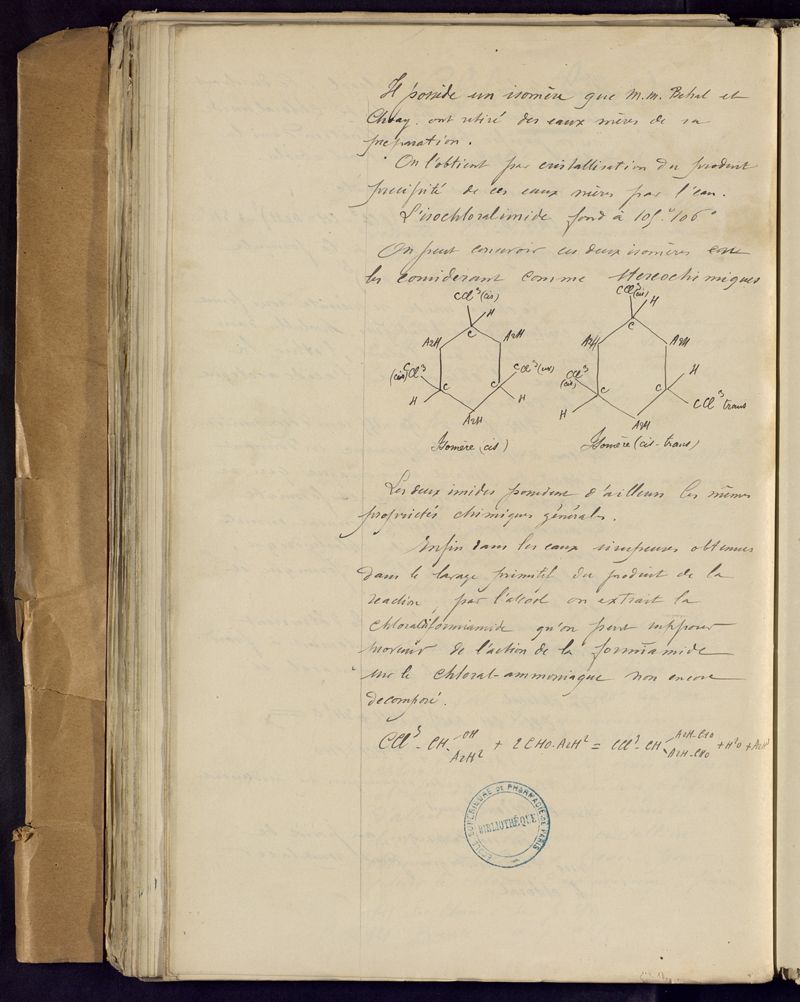 Il possède un isomère que M.M. Behal et
Choay. ont retiré des eaux mères de sa
preparation.
On l'obtient par cristallisation du produit
précipité de ces eaux mères par l'eau.
L'isochloralimide fond à 105°.106°
On peut concevoir ces deux isomères en
les considerant comme stereochimiques
CCl³(cis)
H
C
AzH
AzH
(cis)CCl³
CCl³(cis)
C
C
H
H
AzH
Isomère (cis)
CCl³
(cis)
H
C
AzH
AzH
CCl³
(cis)
H
C
C
CCl³ trans
H
AzH
Isomère (cis-trans)
Les deux imides possedent d'ailleurs les mêmes
propriétés chimiques générales.
Enfin dans les eaux sirupeuses obtenues
dans le lavage primitif du produit de la
reaction, par l'alcool on extrait la
chloraldiformiamide qu'on peut supposer
provenir de l'action de la formiamide
sur le chloral-ammoniaque non encore
decomposé.
CCl³-CH OH AzH² + 2CHO.AzH² = CCl³-CH AzH-CHO AzH-CHO + H²O + AzH³
ECOLE SUPÉRIEURE DE PHARMACIE DE PARIS
BIBLIOTHÈQUE